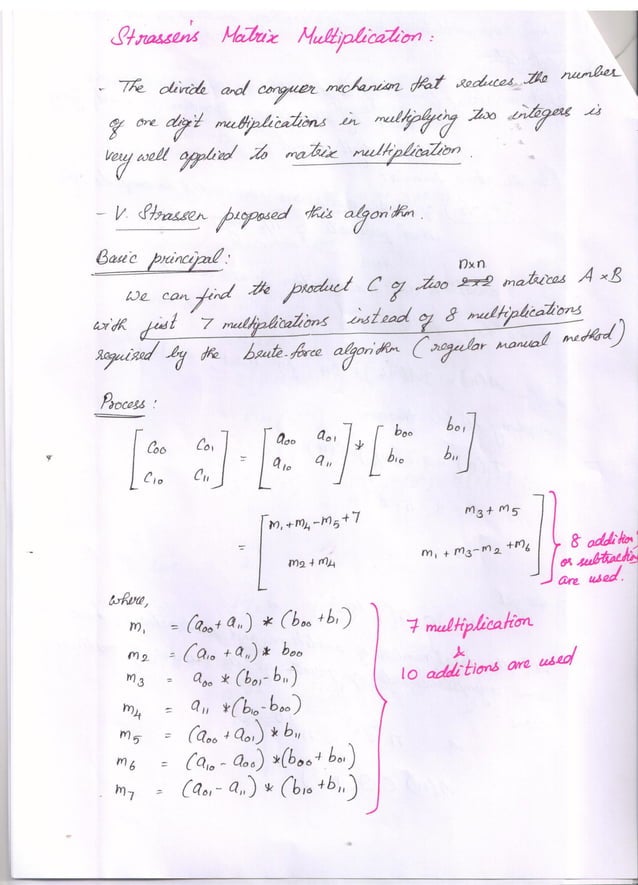 Strassen's Matrix Multiplication :
- The divide and conquer mechanism that reduces the number
of one digit multiplications in multiplying two integers is
very well applied to matrix multiplication.
- V. Strassen proposed this algorithm.
Basic principal :
n×n
We can find the product C of two 2×2 matrices A × B
with just 7 multiplications instead of 8 multiplications
required by the brute-force algorithm (regular manual method)
Process :
[ C00 C01 ] = [ a00 a01 ] * [ b00 b01 ]
[ C10 C11 ] [ a10 a11 ] [ b10 b11 ]
= [ m1 + m4 - m5 + 7 m3 + m5 ]
[ m2 + m4 m1 + m3 - m2 + m6 ]
8 addition
or subtraction
are used.
where,
m1 = (a00 + a11) * (b00 + b1)
m2 = (a10 + a11) * b00
m3 = a00 * (b01 - b11)
m4 = a11 * (b10 - b00)
m5 = (a00 + a01) * b11
m6 = (a10 - a00) * (b00 + b01)
m7 = (a01 - a11) * (b10 + b11)
7 multiplication
&
10 additions are used